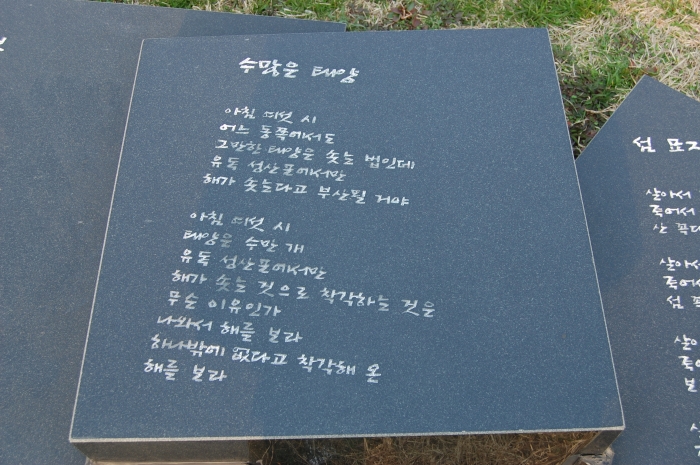 수많은 태양
아침 여섯 시
어느 동쪽에서도
그만한 태양은 솟는 법인데
유독 성산포에서만
해가 솟는다고 부산필 거야
아침 여섯 시
태양은 수만 개
유독 성산포에서만
해가 솟는 것으로 착각하는 것은
무슨 이유인가
나와서 해를 보라
하나밖에 없다고 착각해 온
해를 보라
섬 묘지
살아서
죽어서
산 꼭대
살아서
죽어서
섬 꼭
살아
죽어
본